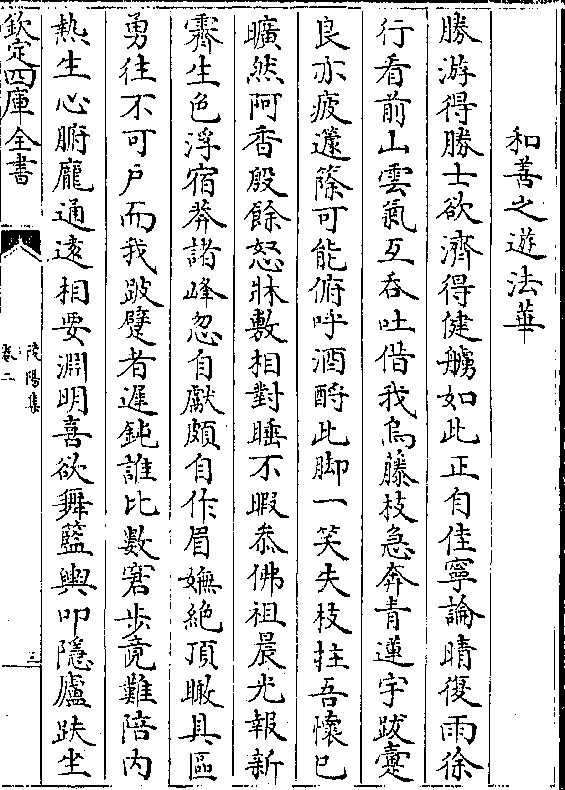 和善之遊法華
勝游得勝士欲濟得健艣如此正自佳寧論晴復雨徐
行看前山雲氣互吞吐借我烏藤枝急奔青蓮宇跋疐
良亦疲籧篨可能俯呼酒酹此脚一笑失枝拄吾懷已
曠然阿香殷餘怒牀敷相對睡不暇叅佛祖晨光報新
霽生色浮宿莽諸峰忽自獻頗自作眉嫵絶頂瞰具區
勇往不可戶而我跛躄者遲鈍誰比數窘步竟難陪内
熱生心腑龐通遠相要淵明喜欲舞籃輿叩隱廬趺坐
欽定四庫全書
陵陽集
卷二
三